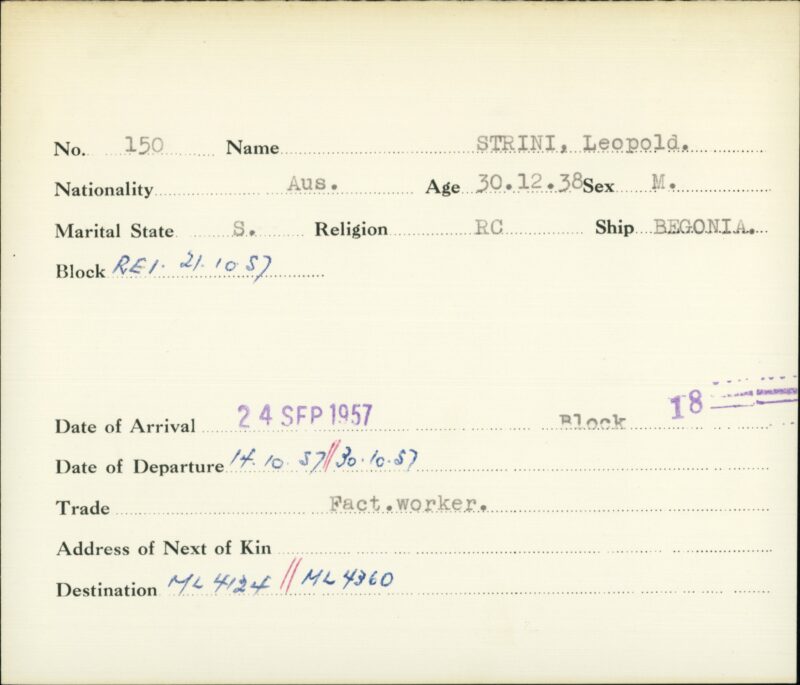 No. 150 Name STRINI, Leopold.
Nationality Aus. Age 30.12.38 Sex M.
Marital State S. Religion RC Ship BEGONIA.
Block RE1. 21.10 57
Date of Arrival 24 SEP 1957 Block 18
Date of Departure 14.10.57//30.10.57
Trade Fact.worker.
Address of Next of Kin
Destination ML 4124 // ML 4360